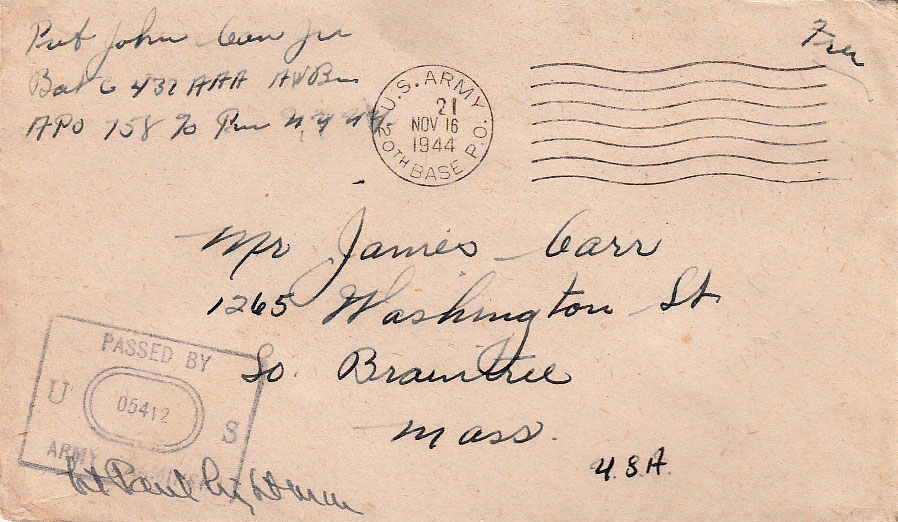 Pvt John Carr Jr
Bat C 432 AAA AW Bn
APO 758 % Pm N.Y. N.Y.
Free
U.S. ARMY
21
NOV 16
1944
20TH BASE P.O.
Mr James Carr
1265 Washington St
So. Braintree
Mass.
U.S.A.
PASSED BY
U 05412 S
ARMY
Lt Paul